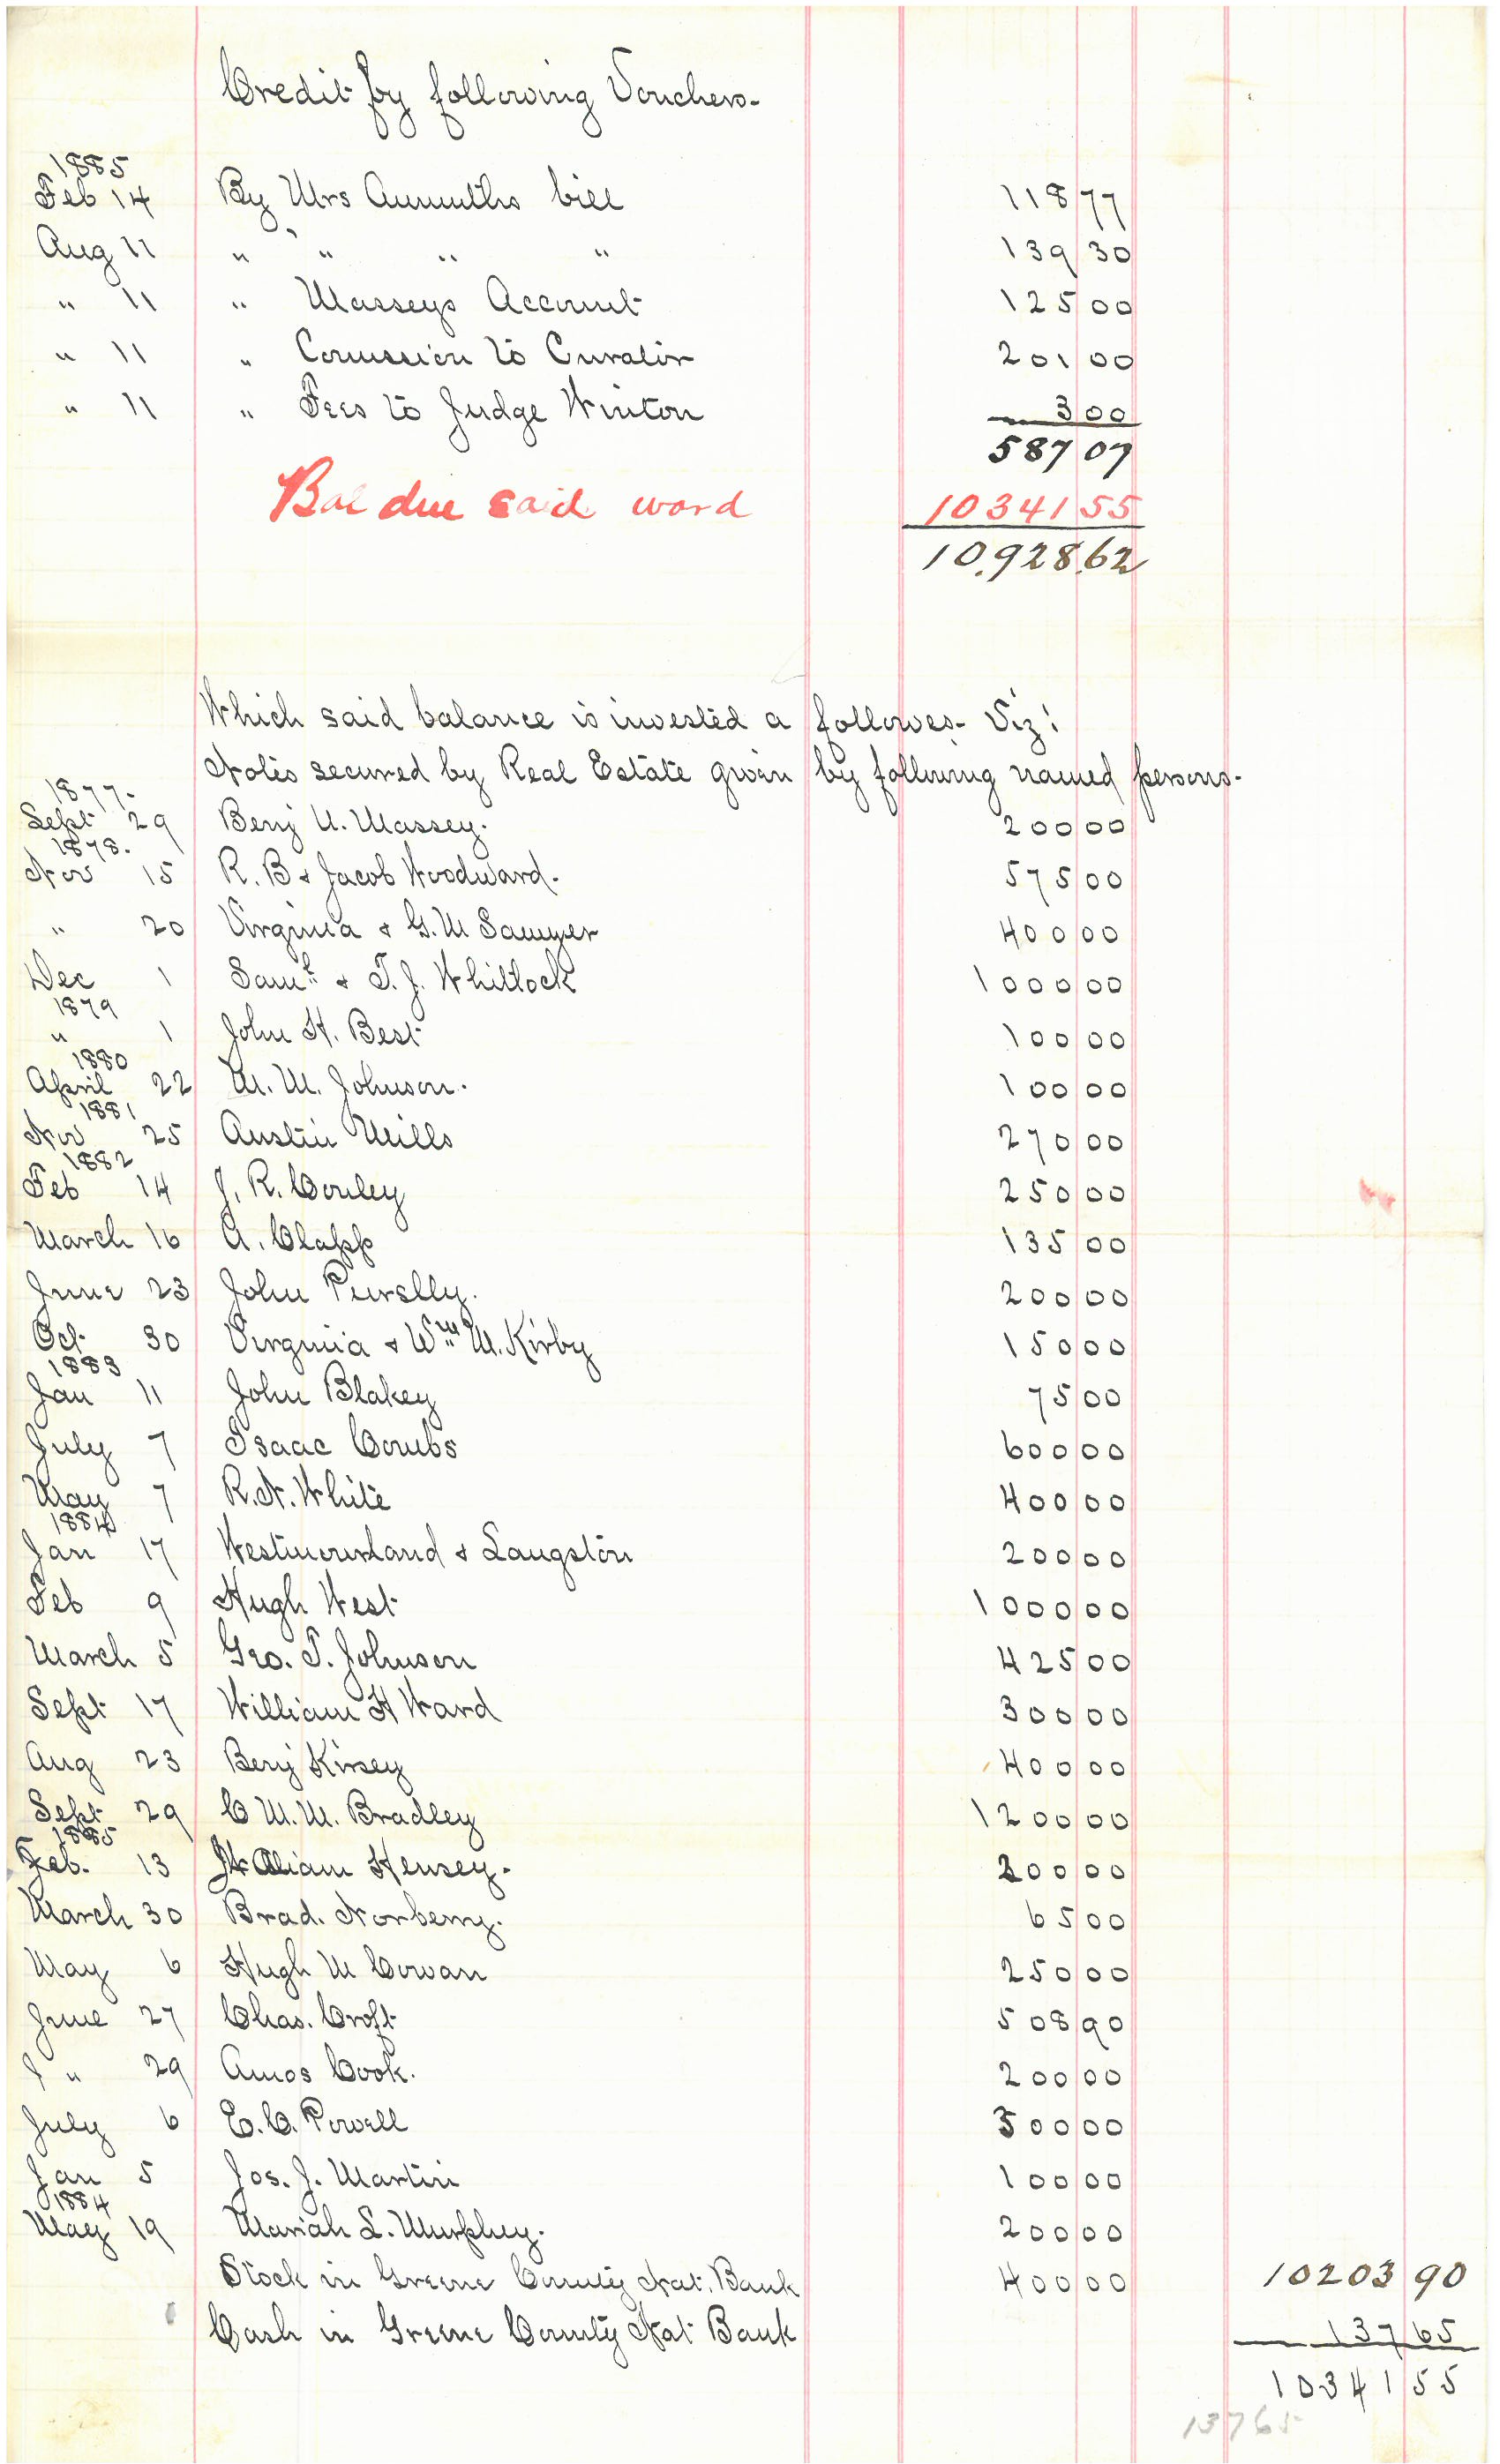 Credit by following Vouchers-
1885
Feb 14 By Mrs Aumuths bill 118 77
Aug 11 " " " " 139 30
" 11 " Masseys Account 125 00
" 11 " Comission to Curator 201 00
" 11 " Fees to Judge Winton 3 00
587 07
Bal due said ward 10341 55
10,928.62
Which said balance is invested a followes- Viz:
Notes secured by Real Estate given by following named persons-
1877-
Sept 29 Benj U. Massey. 200 00
1878.
Nov 15 R. B & Jacob Woodward. 575 00
" 20 Virginia & G. M Sawyer 400 00
Dec 1 Saml & T. J. Whitlock 1000 00
1879
" 1 John H. Best 100 00
1880
April 22 M. M. Johnson. 100 00
1881
Nov 25 Austin Mills 270 00
1882
Feb 14 J. R. Conley 250 00
March 16 A. Clapp 135 00
June 23 John Purselly. 200 00
Oct 30 Virginia & Wm M. Kirby 150 00
1883
Jan 11 John Blakey 75 00
July 7 Isaac Combs 600 00
May 7 R. N. White 400 00
1884
Jan 17 Westmoreland & Langston 200 00
Feb 9 Hugh West 1000 00
March 5 Geo. T. Johnson 425 00
Sept 17 William H Ward 300 00
Aug 23 Benj Kinsey 400 00
Sept 29 C M. M. Bradley 1200 00
1885
Feb. 13 William Hensey. 200 00
March 30 Brad. Norberry. 65 00
May 6 Hugh M Cowan 250 00
June 27 Chas. Croft 508 90
" 29 Amos Cook. 200 00
July 6 E. C. Powell 300 00
Jan 5 Jos. J. Martin 100 00
1884
May 19 Mariah L. Murphey. 200 00
Stock in Greene County Nat. Bank 400 00 10203 90
Cash in Greene County Nat Bank 137 65
10341 55
137 65